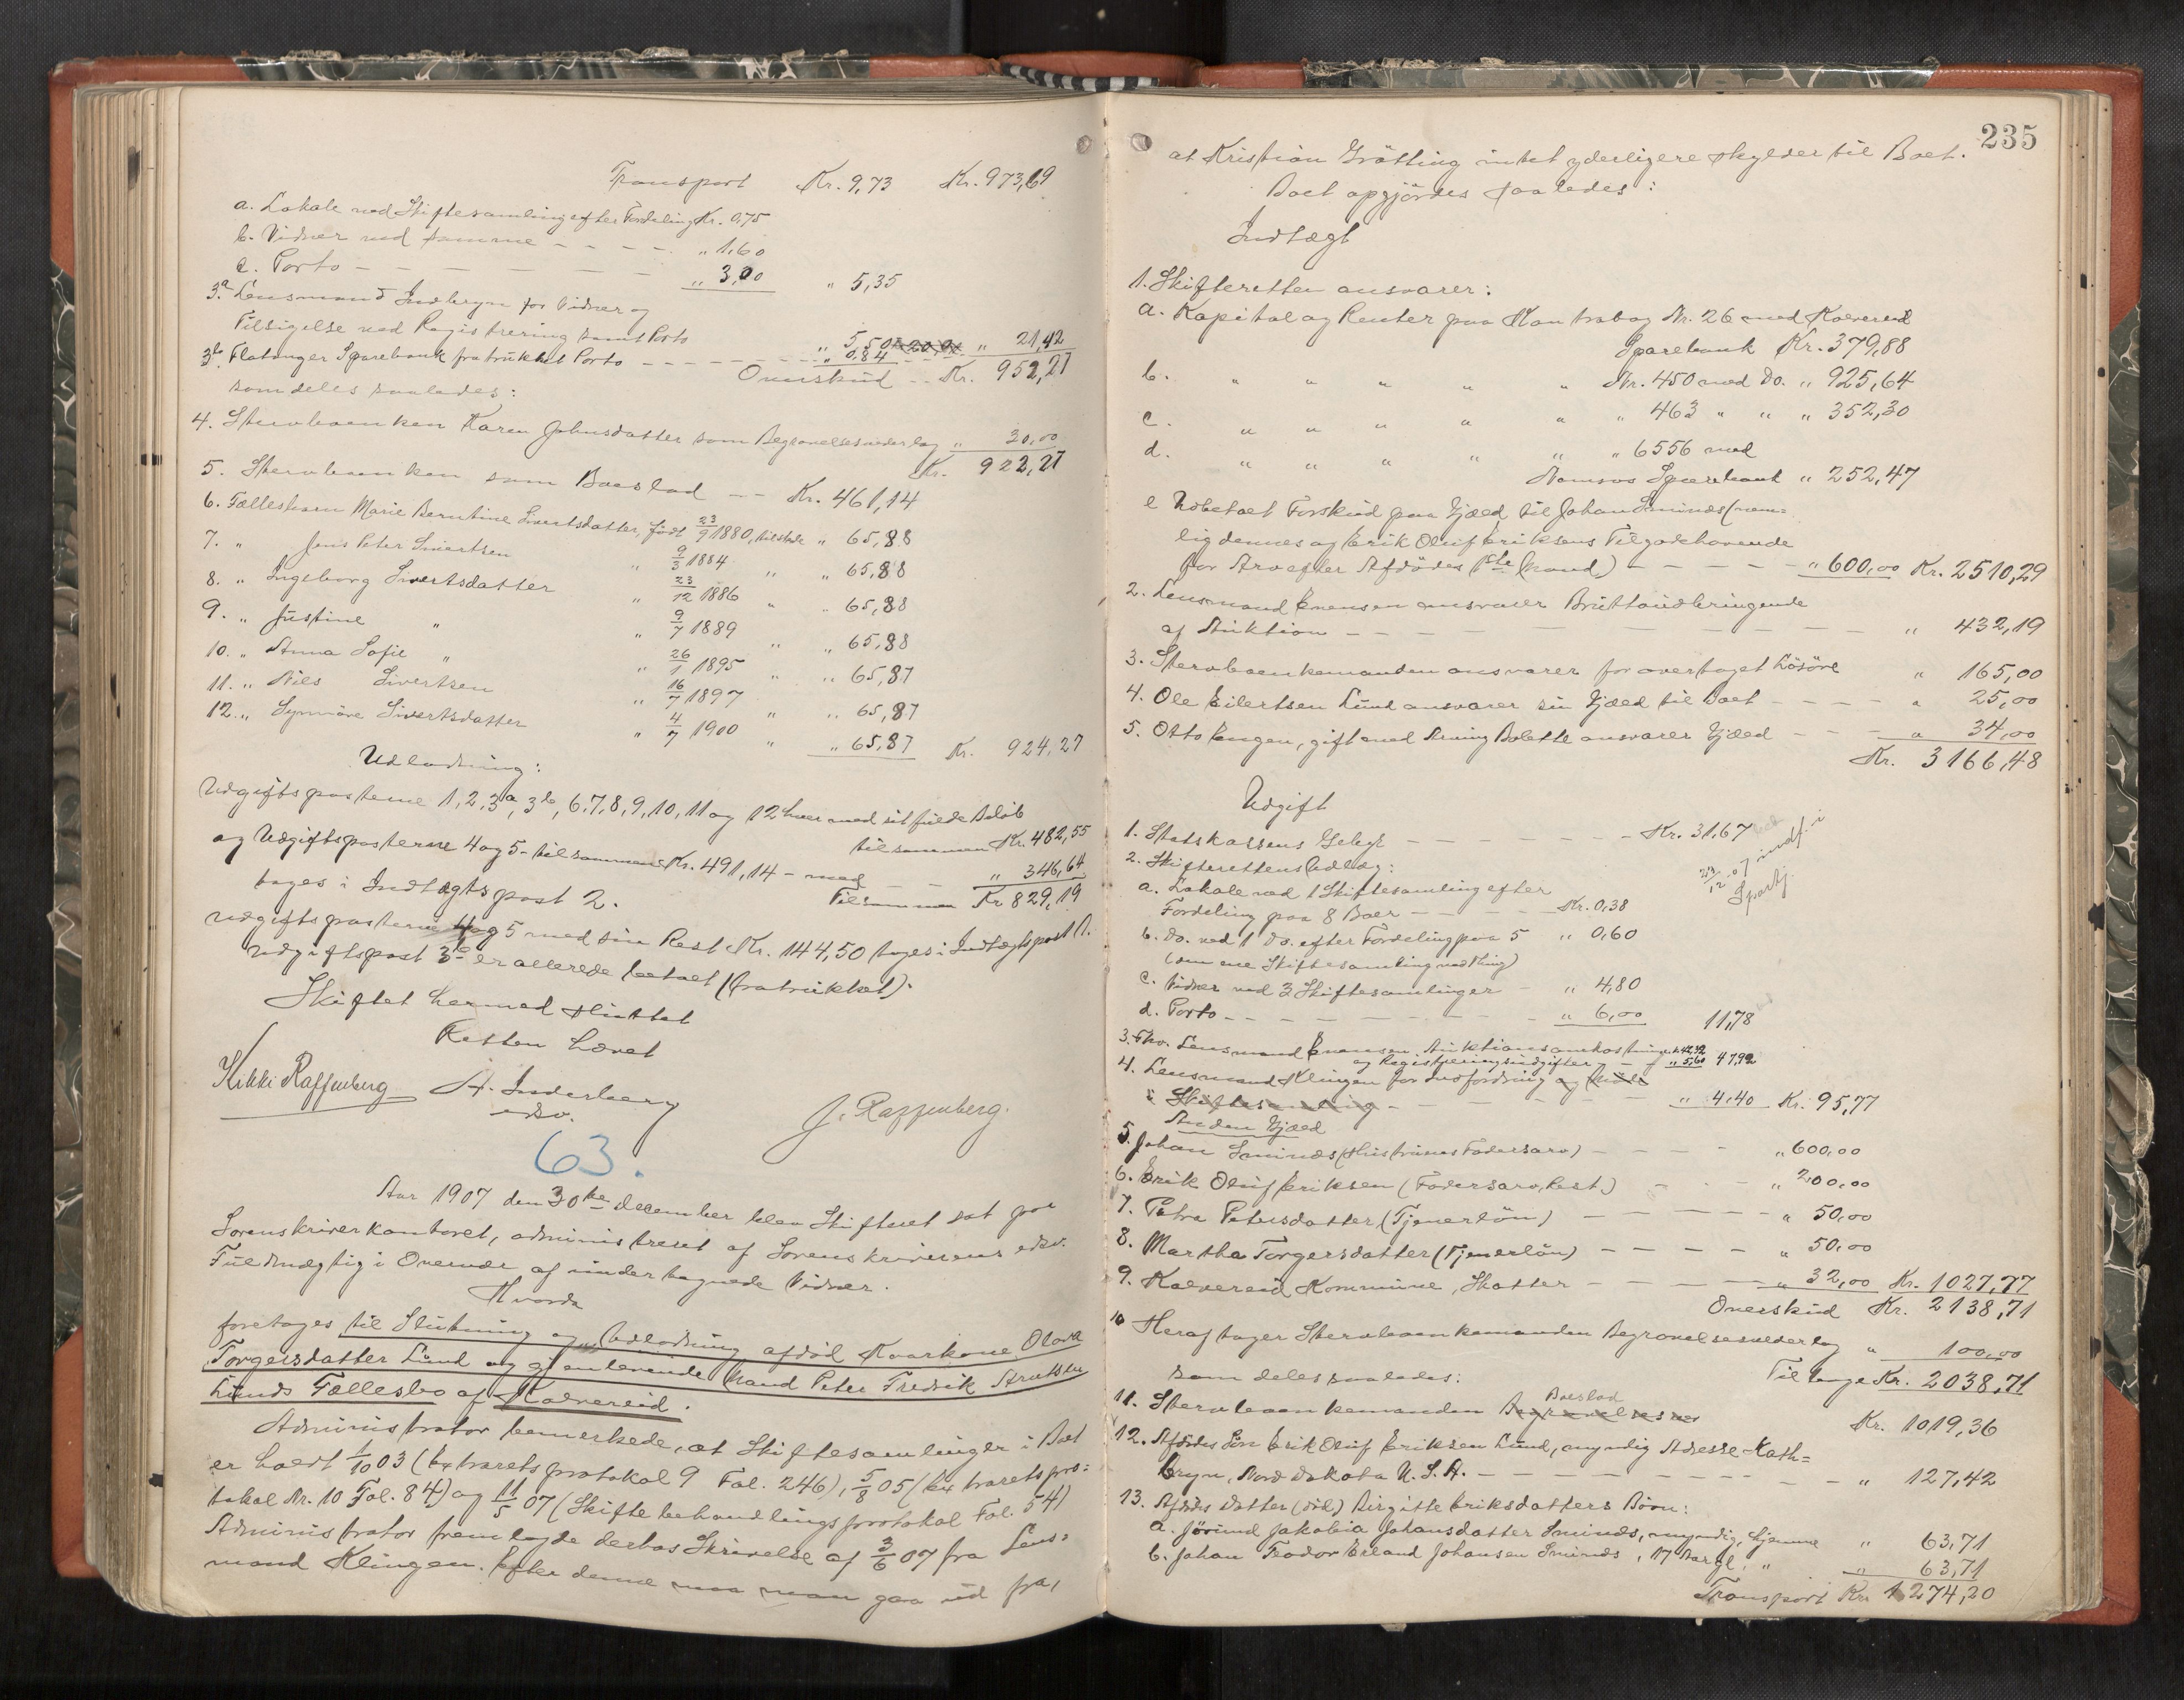 Transport Kr. 9,73 Kr. 973,69
a. Lokale ved Skiftesamling efter Fordeling Kr. 0,75
b. Vidner ved samme - - - - - „ 1,60
c. Porto - - - - - - „ 3,00 „ 5,35
3a. Lensmand Indbryn for Vidner og
Tilsigelse ved Registrering samt Porto „ 5,50 „ 21,42
3b. Flatanger Sparebank fratrukket Porto - - - - - „ 0,84
Overskud - - Kr. 952,27
som deles saaledes:
4. Stervboenken Karen Johnsdatter som Begravelsesvederlag „ 30,00
Kr. 922,27
5. Stervboenken som Boeslod - - Kr. 461,14
6. Fællesbarn Marie Berntine Sivertsdatter, født 23/9 1880, tilstede „ 65,88
7. „ Jens Peter Sivertsen „ 9/3 1884 „ „ 65,88
8. „ Ingeborg Sivertsdatter „ 23/12 1886 „ „ 65,88
9. „ Justine „ „ 9/7 1889 „ „ 65,88
10. „ Anna Sofie „ „ 26/1 1895 „ „ 65,87
11. „ Nils Sivertsen „ 16/7 1897 „ „ 65,87
12. „ Synnöve Sivertsdatter „ 4/7 1900 „ „ 65,87 Kr. 924,27
Udlodning:
Udgiftsposterne 1, 2, 3a, 3b, 6, 7, 8, 9, 10, 11 og 12 hver med sit fulde Beløb
tilsammen Kr. 482,55
og Udgiftsposterne 4 og 5 - tilsammen Kr. 491,14 - med - - „ 346,64
tages i Indtægtspost 2. Tilsammen Kr 829,19
Udgiftsposterne 4 og 5 med sin Rest Kr. 144,50 tages i Indtægtspost 1.
Udgiftspost 3b er allerede betalt (fratrukket).
Skiftet hermed sluttet
Retten hævet
Kikki Raffenberg A. Inderberg
edsv. J. Raffenberg.
63.
Aar 1907 den 30te December blev Skifteret sat paa
Sorenskriverkontoret, administreret af Sorenskriverens edsv.
Fuldmægtig i Overvær af undertegnede Vidner.
Hvorda
foretages til Slutning og Udlodning afdød Kvarkone Olava
Torgersdatter Lund og gjenlevende Mand Peter Fredrik Arntsen
Lunds Fællesbo af Kolvereid.
Administrator bemerkede, at Skiftesamlinger i Boet
er holdt 1/10 03 (Extraretsprotokol 9 Fol. 246), 5/8 05 (Extraretspro=
tokol Nr. 10 Fol. 84) og 11/5 07 (Skiftebehandlingsprotokol Fol. 54)
Administrator fremlagde derhos Skrivelse af 3/6 07 fra Lens=
mand Klingen. Efter denne maa man gaa ud fra,
235
at Kristian Grötting intet yderligere skylder til Boet.
Boet opgjördes saaledes:
Indtægt
1. Skifteretten ansvarer:
a. Kapital og Renter paa Kontrabog Nr. 26 med Kolvereid
Sparebank Kr. 379,88
b. „ „ „ „ „ Nr. 450 med do. „ 925,64
c. „ „ „ „ „ „ 463 „ „ „ 352,30
d. „ „ „ „ „ „ 6556 med
Namsos Sparebank „ 252,47
e Udbetalt Forskud paa Gjæld til Johan Sminds (nem=
lig dennes og Erik Oluf Eriksens Tilgodehavende
for Arv efter Afdødes 1ste Mand) - - - - „ 600,00 Kr. 2510,29
2. Lensmand Evensen ansvarer Bruttoudbringende
af Auktion - - - - - - - - „ 432,19
3. Stervboenkemanden ansvarer for overtaget Lösöre „ 165,00
4. Ole Eilertsen Lund ansvarer sin Gjæld til Boet - - - - „ 25,00
5. Otto Engen, gift med Arning Bolette ansvarer Gjæld - - - „ 34,00
Kr. 3166,48
Udgift
1. Statskassens Gebyr - - - - - Kr. 31,67
23/12 07 indf. i
Sportj.
2. Skifterettens Udlæg:
a. Lokale ved 1 Skiftesamling efter
Fordeling paa 8 Boer - - - - Kr. 0,38
b. do. ved 1 do. efter Fordeling paa 5 „ 0,60
(den ene Skiftesamling ved Thing)
c. Vidner ved 3 Skiftesamlinger - „ 4,80
d. Porto - - - - - - - „ 6,00 11,78
3. Fhv. Lensmand Evensen, Auktionsomkostninger k. 42,32
og Registreringsudgifter - „ 5,60 47,92
4. Lensmand Klingen for Indfordring og Möde
i Skiftesamling - - - - - „ 4,40 Kr. 95,77
Anden Gjæld
5. Johan Sminds (Hustruens Fadersarv) - - - - „ 600,00
6. Erik Oluf Eriksen (Fadersarv, Rest) - - - „ 200,00
7. Petra Petersdatter (Tjenerlön) - - - - - „ 50,00
8. Martha Torgersdatter (Tjenerlön) - - - - „ 50,00
9. Kolvereid Kommune, Skatter - - - - - „ 32,00 Kr. 1027,77
Overskud Kr. 2138,71
10 Heraf tager Stervboenkemanden Begravelsesvederlag „ 100,00
Tilbage Kr. 2038,71
som deles saaledes:
11. Stervboenkemanden Boeslod Kr. 1019,36
12. Afdødes Sön Erik Oluf Eriksen Lund, myndig Adresse Kath=
bryn, Nord Dakota U. S. A. - - - - - - - - „ 127,42
13. Afdødes Datter (död) Birgitte Eriksdatters Börn:
a. Jörund Jakobia Johansdatter Sminds, myndig, hjemme „ 63,71
b. Johan Teodor Erland Johansen Sminds, 17 Aar gl., „ „ 63,71
Transport Kr. 1274,20